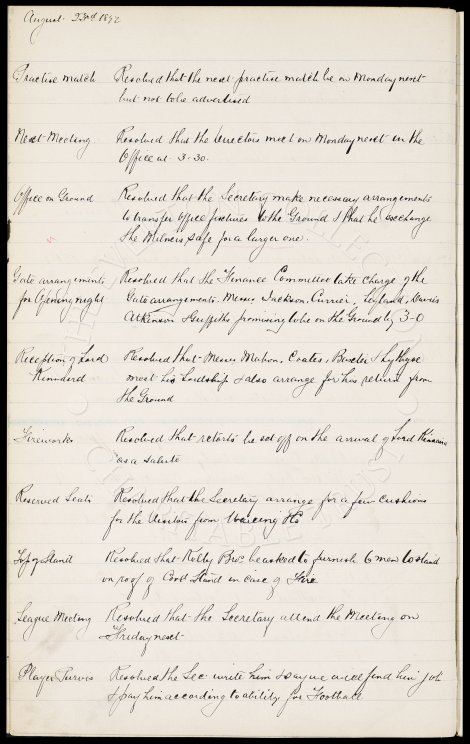 August 23rd 1892
Practise match Resolved that the next practise match be on Monday next
but not to be advertised
Next Meeting Resolved that the Directors meet on Monday next in the
Office at 3-30.
Office on Ground Resolved that the Secretary make necessary arrangements
to transfer office fixtures to the Ground & that he exchange
the Milners safe for a larger one.
Gate arrangements Resolved that the Finance Committee take charge of the
for Opening night Gate arrangements. Messrs Jackson, Currier, Leyland, Davies
Atkinson & Griffiths promising to be on the Ground by 3-0
Reception of Lord Resolved that Messrs Mahon, Coates, Baxter & Lythgoe
Kinnaird meet his Lordship & also arrange for his return from
the Ground
Fireworks Resolved that retorts be set off on the arrival of Lord Kinnaird
as a salute
Reserved Seats Resolved that the Secretary arrange for a few cushions
for the Visitors from
Top of Stand Resolved that Kelly Bros be asked to furnish 6 men to stand
on roof of Stand in case of Fire
League Meeting Resolved that the Secretary attend the Meeting on
Friday next
Player Purvis Resolved the Sec write him & say we will find him job
& pay him according to ability for Football